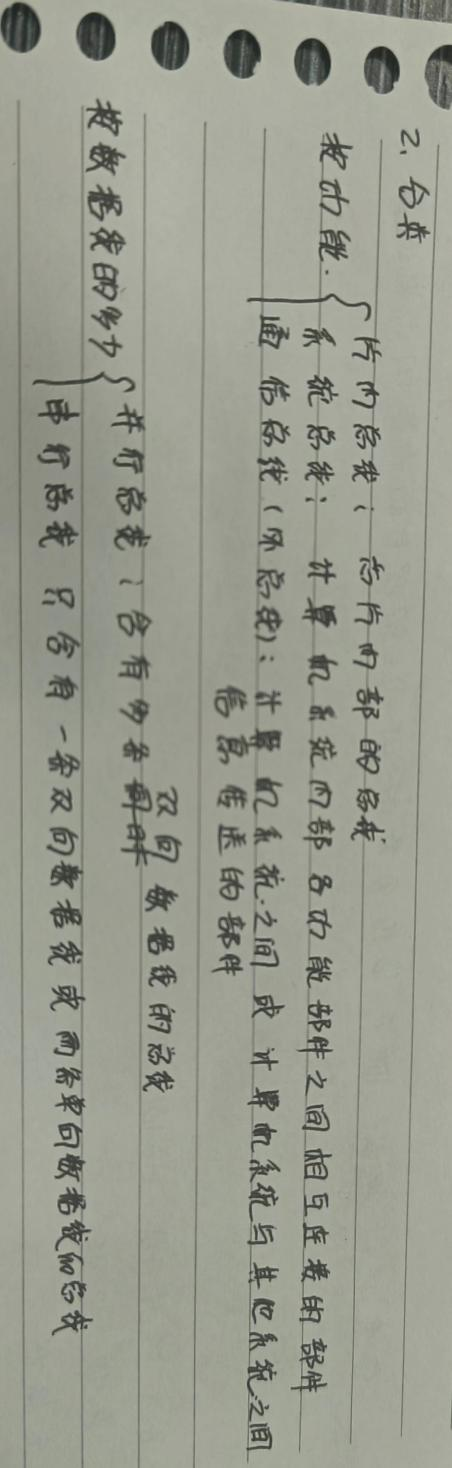 2、分类
按功能.
片内总线：芯片内部的总线
系统总线：计算机系统内部各功能部件之间相互连接的部件
通信总线（外总线）：计算机系统之间或计算机系统与其他系统之间
信息传送的部件
按数据线的多少
并行总线：含有多条双向数据线的总线
串行总线 只含有一条双向数据线或两条单向数据线的总线